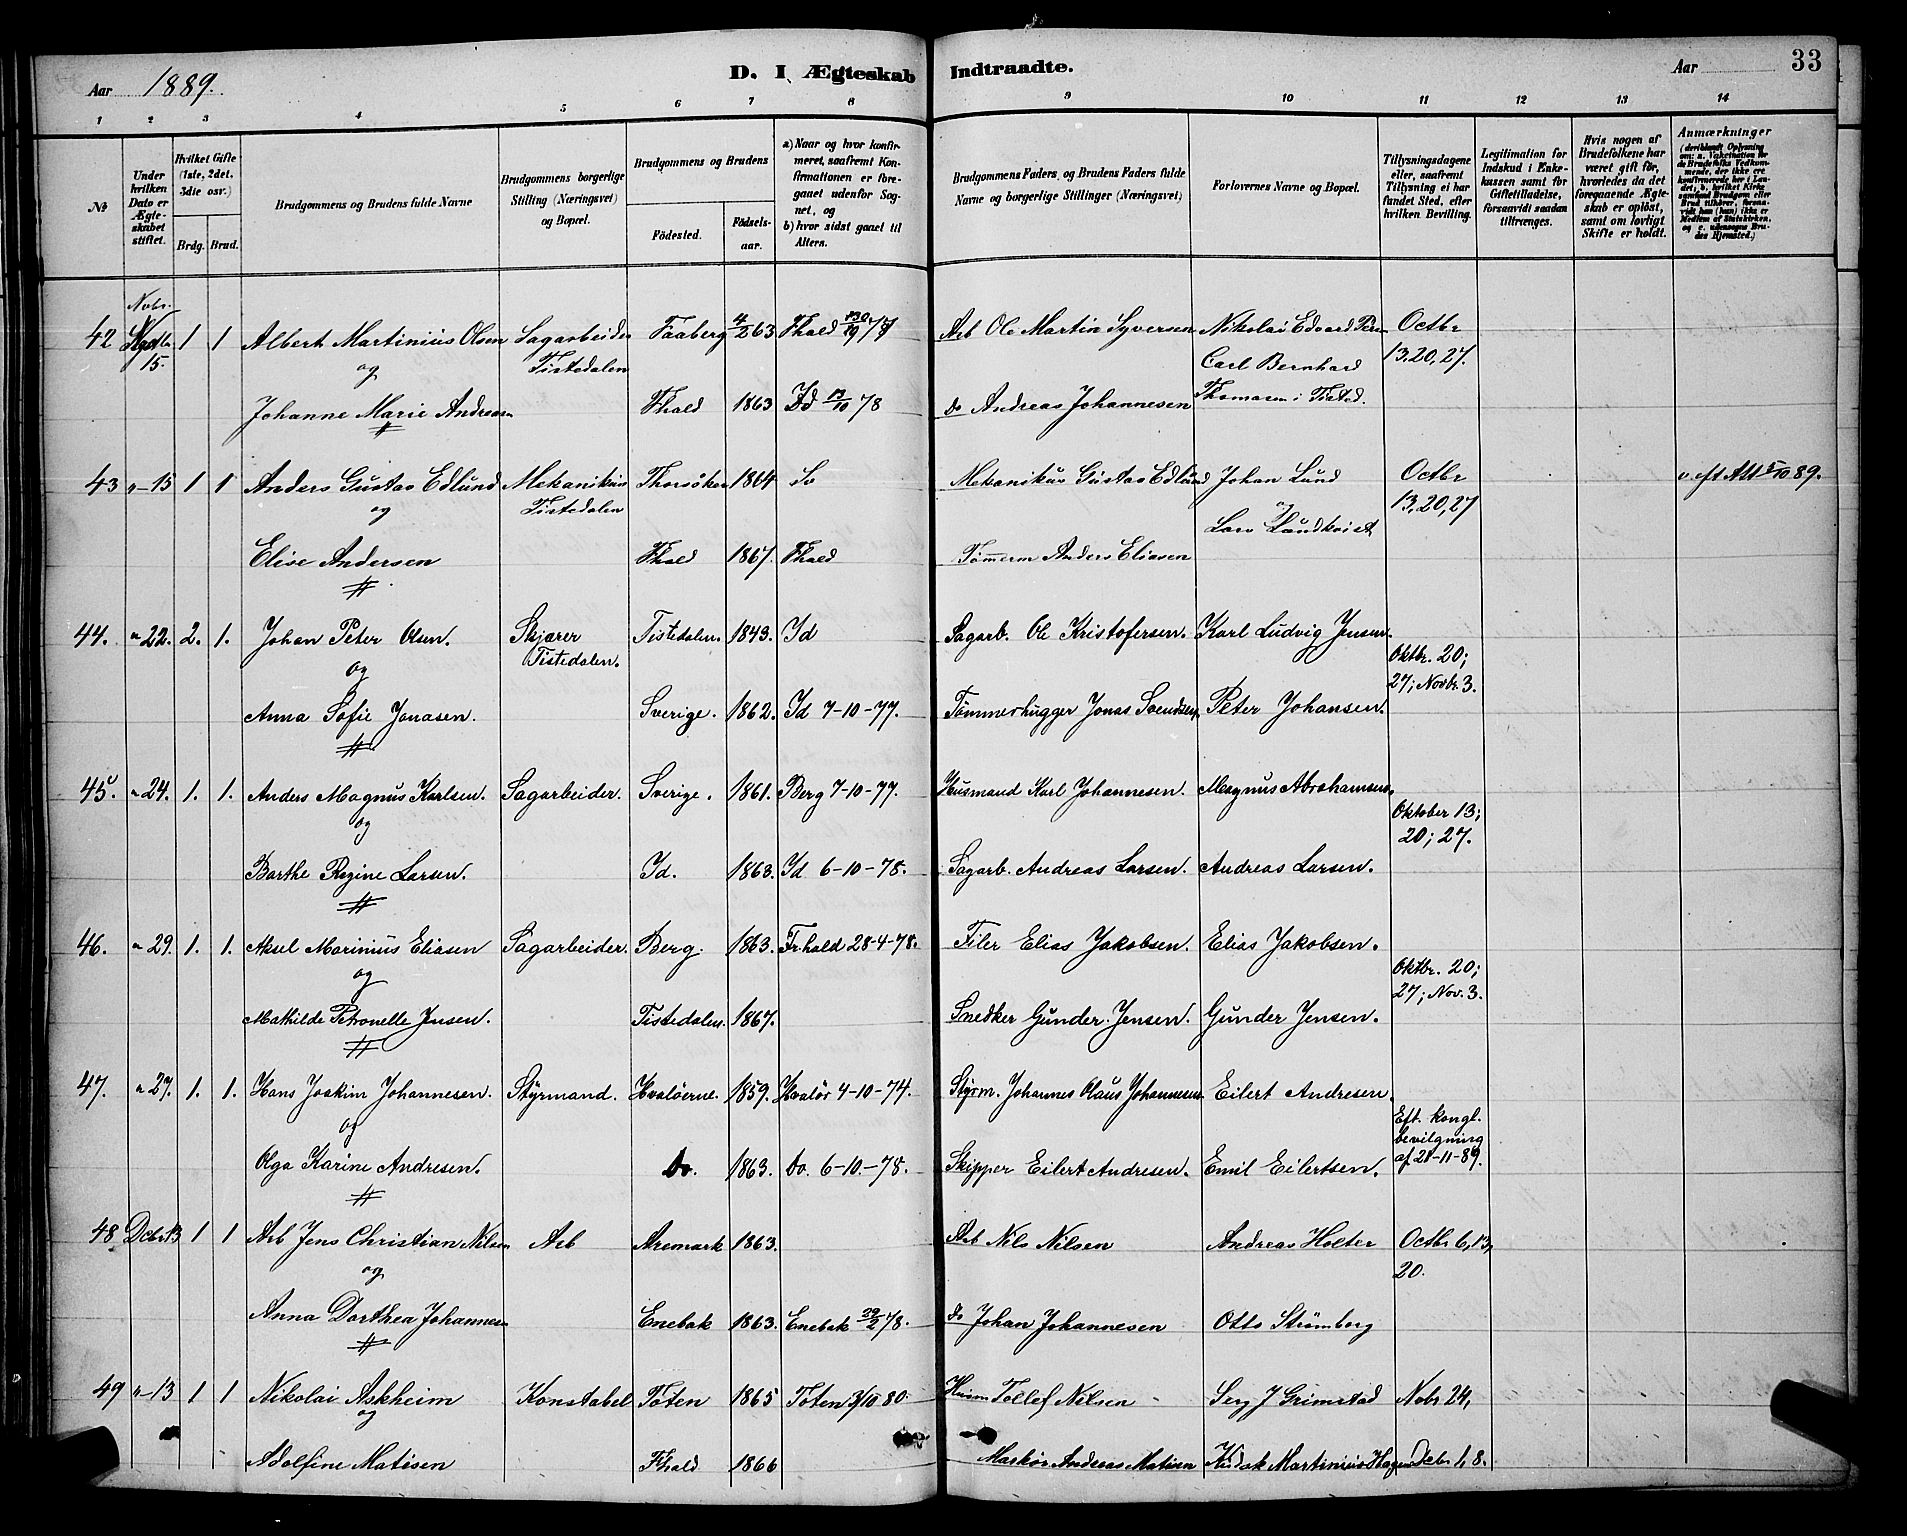 Aar 1889. D. I Ægteskab Indtraadte. Aar 33
1 2 3 4 5 6 7 8 9 10 11 12 13 14
№
Under hvilken Dato er Ægteskabet stiftet.
Hvilket Gifte (1ste, 2det, 3die osv.)
Brdg. Brud.
Brudgommens og Brudens fulde Navne
Brudgommens borgerlige Stilling (Næringsvei) og Bopæl.
Brudgommens og Brudens
Fødested. Fødselsaar.
a) Naar og hvor konfirmeret, saafremt Konfirmationen er foregaaet udenfor Sognet, og
b) hvor sidst gaaet til Alters.
Brudgommens Faders, og Brudens Faders fulde Navne og borgerlige Stillinger (Næringsvei)
Forlovernes Navne og Bopæl.
Tillysningsdagene eller, saafremt Tillysning ei har fundet Sted, efter hvilken Bevilling.
Legitimation for Indskud i Enkekassen samt for Giftetilladelse, forsaavidt saadan tiltrænges.
Hvis nogen af Brudefolkene har været gift før, hvorledes da det foregaaende Ægteskab er opløst, samt om lovligt Skifte er holdt.
Anmærkninger
Novbr.
42 15. 1 1 Albert Martinius Olsen Sagarbeider Faaberg 4/2 63 Fhald Arb Ole Martin Syversen Nikolai Edvard Octbr
og Tistedalen Carl Bernhard 13,20,27.
Johanne Marie Andersen Fhald 1863 Id 13/10 78 do Andreas Johannesen Thomasen i Tisted.
43 "-15 1 1 Anders Gustav Edlund Mekanikus Thorsöken 1864 Sv Mekanikus Gustav Edlund Johan Lund Octbr v eft Att 5/10 89.
og Tistedalen 13,20,27
Lars Lundkvist
Elise Andersen Fhald 1867. Fhald Tömmerm Anders Eliasen
44. "22. 2. 1. Johan Peter Olsen. Skjærer Tistedalen. 1843. Id Sagarb. Ole Kristofersen. Karl Ludvig Jensen.
og Tistedalen. Oktbr. 20; 27; Novbr. 3.
Anna Sofie Jonasen. Sverige. 1862. Id 7-10-77. Tømmerhugger Jonas Svendsen. Peter Johansen.
45. "24. 1. 1. Anders Magnus Karlsen. Sagarbeider. Sverige. 1861. Berg 7-10-77. Husmand Karl Johannesen. Magnus Abrahamsen.
og Oktober 13; 20; 27.
Barthe Regine Larsen. Id. 1863. Id 6-10-78. Sagarb. Andreas Larsen. Andreas Larsen.
46. "29. 1. 1. Aksel Marinius Eliasen Sagarbeider. Berg. 1863. Fr.hald 28-4-78. Filer Elias Jakobsen. Elias Jakobsen.
og Oktbr. 20; 27; Nov. 3.
Mathilde Petronelle Jensen. Tistedalen. 1867. Snedker Gunder Jensen. Gunder Jensen.
47. "27. 1. 1. Hans Joakim Johannesen. Styrmand. Hvaløerne. 1859. Hvalør 4-10-74. Styrm. Johannes Olaus Johannesen Eilert Andresen.
og Eft. kongl. bevilgning af 21-11-89.
Olga Karine Andresen. Do. 1863. Do. 6-10-78. Skipper Eilert Andresen. Emil Eilertsen.
48 Decbr. 13 1 1 Arb Jens Christian Nilsen Arb Aremark 1863. Arb Nils Nilsen Andreas Holter Octbr 6,13,
og 20.
Anna Dorthea Johannesen Enebak 1863. Enebak 29/2 78. do Johan Johannesen Otto Strömberg
49 "-13 1 1 Nikolai Askheim Konstabel Toten 1865 Toten 3/10 80. Husm Tollef Nilsen Serg J Grimstad Nobr 24,
og
Adolfine Matisen Fhald 1866 Markör Andreas Matisen Martinius Hagen Decbr 1, 8.